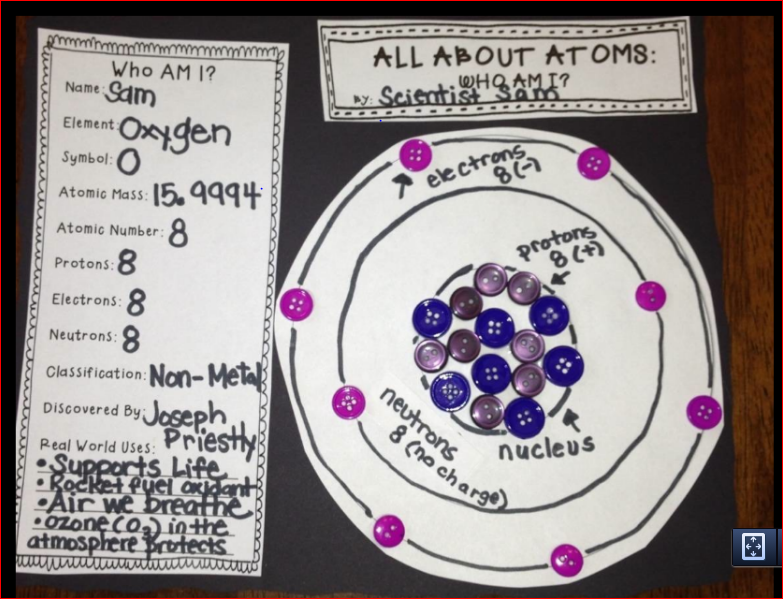 Who AM I?
Name: Sam
Element: Oxygen
Symbol: O
Atomic Mass: 15.9994
Atomic Number: 8
Protons: 8
Electrons: 8
Neutrons: 8
Classification: Non-Metal
Discovered By: Joseph
Priestly
Real World Uses:
• Supports Life
• Rocket fuel oxidant
• Air we breathe
• Ozone (O₃) in the
atmosphere protects
ALL ABOUT ATOMS:
WHO AM I?
By: Scientist Sam
electrons
8 (-)
protons
8 (+)
neutrons
8 (no charge)
nucleus